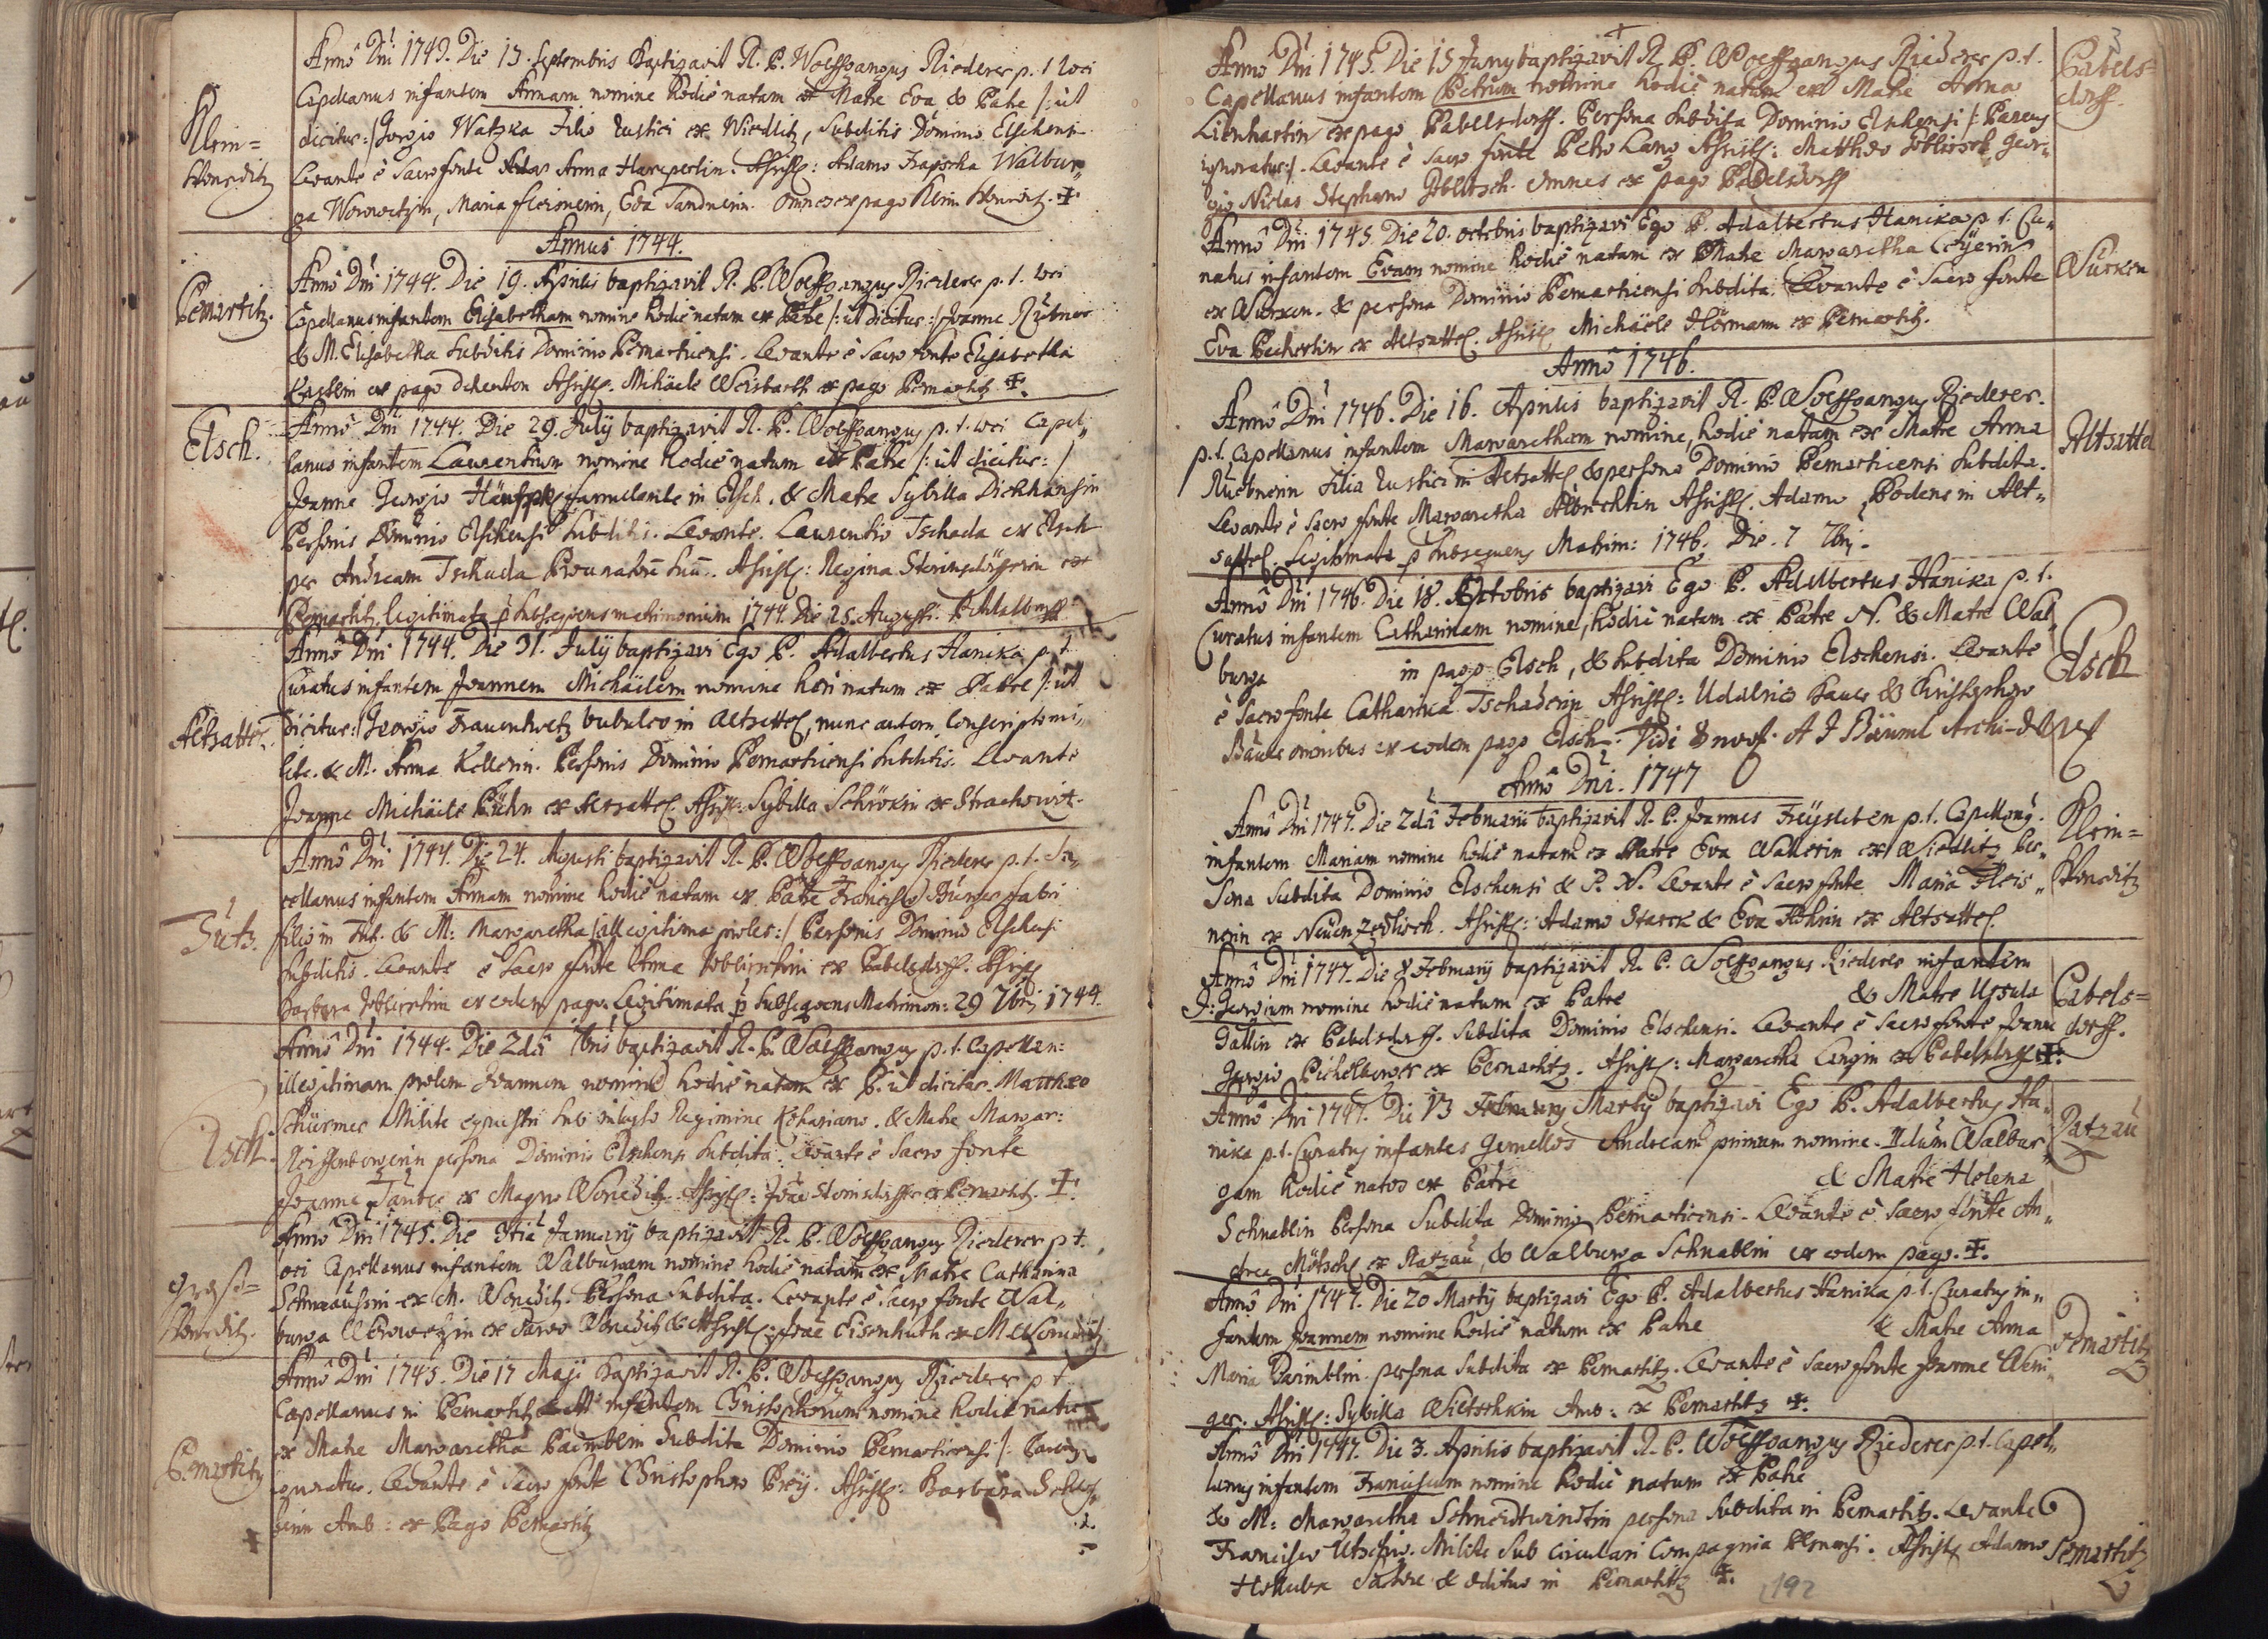 Klein=
Woneditz
Anno Dni 1743. Die 13. Septembris Baptizavit R. P. Wolffgangus Riederer p. t. loci
Capellanus infantem Annam nomine hodie natam ex Matre Eva & Patre /: ut
dicitur :/ Georgio Watzka Filio Rustici ex Wiedlitz, Subditis Dominio Elschensi
Levante è Sacro fonte Anna Hareperlin. Assist: Adamo Trapscha Walbur„
ga Worowetzin, Maria Fleisnerin, Eva Sandnerin. Omnes ex pago Klein Wonetitz. ✝
Annus 1744.
Pernartitz.
Anno Dni 1744. Die 19. Aprilis baptizavit R. P. Wolffgangus Riederer p. t. loci
Capellanus infantem Elisabetham nomine hodie natam ex Patre /: ut dicitur :/ Joanne Rzübner
& M. Elisabetha Subditis Dominio Pernarticensi. Levante è Sacro fonte Elisabetha
ex pago Assist. Michaele Weisbarth ex pago Pernartitz ✝.
Elsch.
Anno Dni 1744. Die 29. July baptizavit R. P. Wolffgangus p. t. loci Capel„
lanus infantem Laurentium nomine hodie natum ex Patre /: ut dicitur: /
Joanne Georgio famulante in Elsch. & Matre Sybilla Dickhansin
Personis Dominio Elschensi Subditis. Levante. Laurentio Tschada ex Elsch
per Andream Tschada Assist: Regina Steinsdörfferin ex
Pernartitz, legitimata p subsequens matrimonium 1744. Die 25. Augusti.
Altsattel.
Anno Dni 1744. Die 31. July baptizavi Ego P. Adalbertus Hanika p. t.
Curatus infantem Joannem Michäelem nomine heri natum ex Patre /: ut
dicitur :/ Georgio bubulco in Altsattel, nunc autem Conscripto mi„
lite. & M. Anna Kellerin. Personis Dominio Pernarticensi Subditis. Levante
Joanne Michäele Bühn ex Altsattel. Assist: Sybilla Schröckin ex Strachowit.
Tutz.
Anno Dni 1744. Die 24. Augusti baptizavit R. P. Wolffgangus Riederer p. t. Ca„
pellanus infantem Annam nomine hodie natam ex Patre Francisco Bürger fabri
filio in Tutz. & M: Margaretha /: illegitima proles :/ Personis Dominio Elschensi
Subditis. Levante è Sacro fonte Anna ex Pabelsdorff. Assist
Barbara ex eodem pago. Legitimata p Subsequens Matrimon: 29 7bris 1744.
Elsch.
Anno Dni 1744. Die 2da 7bris baptizavit R. P. Wolffgangus p. t. Capellan:
illegitimam prolem Joannem nomine hodie natam ex P. ut dicitur Matthæo
Schürmer Milite equestri sub inclyto Regimine & Matre Margar:
persona Dominio Elschensi Subdita. Levante è Sacro fonte
Joanne Tauber ex Magno Woneditz. Assist: Joãe Steinsdörffer ex Pernartitz. ✝.
Gross=
Woneditz.
Anno Dni 1745. Die 3tia January baptizavit R. P. Wolffgangus Riederer p t.
loci Capellanus infantem Walburgam nomine hodie natam ex Matre Catharina
ex M. Woneditz. Persona Subdita. Levante è Sacro fonte Wal„
burga Worowetzin ex Parvo Woneditz & Assist: Joãe Eisenhuth ex M Woneditz
Pernartitz
Anno Dni 1745. Die 17 Maji baptizavit R. P. Wolffgangus Riederer p t.
Capellanus in Pernartitz infantem Christophorum nomine hodie natum
ex Matre Margaretha Paimblin Subdita Dominio Pernarticensi /: Parens
ignoratur. Levante è Sacro fonte Christophoro Prey. Assist: Barbara
Amb: ex Pago Pernartitz
✝
3
Pabels=
dorff.
Anno Dni 1745. Die 15 Juny baptizavit R. P. Wolffgangus Riederer p. t.
Capellanus infantem Petrum nomine hodie natum ex Matre Anna
Lienhartin ex pago Pabelsdorff. Persona Subdita Dominio Elschensi /: Parens
ignoratur :/. Levante è Sacro fonte Petro Lang Assist: Matthæo Geor„
gio Niclas Stephano Omnes ex pago Pabelsdorff
Wurken
Anno Dni 1745. Die 20. octobris baptizavi Ego P. Adalbertus Hanika p t. Cu„
ratus infantem Evam nomine hodie natam ex Matre Margaretha
ex Wurken. & persona Dominio Pernarticensi Subdita. Levante è Sacro fonte
Eva Pecherlin ex Altsattel. Assist Michäele Hörmann ex Pernartitz.
Anno 1746.
Altsattel
Anno Dni 1746. Die 16. Aprilis baptizavit R. P. Wolffgangus Riederer.
p. t. Capellanus infantem Margaretham nomine, hodie natam ex Matre Anna
Ruebnerin Filia Rustici in Altsattel & persona Dominio Pernarticensi Subdita.
Levante è Sacro fonte Margaretha Albrechtin Assist. Adamo Bodens in Alt„
sattel. Legitimata p subsequens Matrim: 1746. Die. 7 7bris.
Elsch
Anno Dni 1746. Die 18. Octobris baptizavi Ego P. Adalbertus Hanika p. t.
Curatus infantem Catharinam nomine, hodie natam ex Patre N. & Matre Wal„
burga in pago Elsch, & Subdita Dominio Elschensi. Levante
è Sacro fonte Catharina Tschaderin Assist: Udalrico Bauer & Christophoro
Bauer omnibus ex eodem pago Elsch. Vidi A J Bäuml Archi-
Anno Dni. 1747
Klein=
Woneditz
Anno Dni 1747. Die 2da Februarii baptizavit R. P. Joannes Freysleben p. t. Capellanus.
infantem Mariam nomine hodie natam ex Matre Eva Wallerin ex Wiedlitz per„
sona Subdita Dominio Elschensi & P. N. Levante è Sacro fonte Maria Fleis„
nerin ex Neuenzedlisch. Assist: Adamo Starck & Eva ex Altsattel.
Pabels=
dorff.
Anno Dni 1747. Die 8 February baptizavit R. P. Wolffgangus Riederer infantem
J: Georgium nomine hodie natum ex Patre & Matre Ursula
Gallin ex Pabelsdorff. Subdita Dominio Elschensi. Levante è Sacro fonte Joanne
Georgio Pichelberger ex Pernartitz. Assist: Margaretha Langin ex Pabelsdorff ✝.
Ratzau
Anno Dni 1747. Die 13 February Martÿ baptizavi Ego P. Adalbertus Ha„
nika p. t. Curatus infantes Gemellos Andream primum nomine. IIdum Walbur„
gam hodie natos ex Patre & Matre Helena
Schnablin Persona Subdita Dominio Pernarticensi. Levante è Sacro fonte An„
drea Mötschl ex Ratzau, & Walburga Schnablin ex eodem pago. ✝.
Pernartitz
Anno Dni 1747. Die 20 Martÿ baptizavi Ego P. Adalbertus Hanika p. t. Curatus in„
fantem Joannem nomine hodie natum ex Patre & Matre Anna
Maria Paimblin persona Subdita ex Pernartitz. Levante è Sacro fonte Joanne Weni„
ger. Assist: Sybilla Wiltschkin Amb: ex Pernartitz ✝.
Pernartitz
Anno Dni 1747. Die 3. Aprilis baptizavit R. P. Wolffgangus Riederer p. t. Capel„
lanus infantem Franciscum nomine hodie natum ex Patre
& M: Margaretha Schneidtwindtin persona Subdita in Pernartitz. Levante
Francisco Milite Sub Circulari Compagnia Plsnensi. Assist Adamo
Holluba Sartore & ædituo in Pernartitz ✝.
192